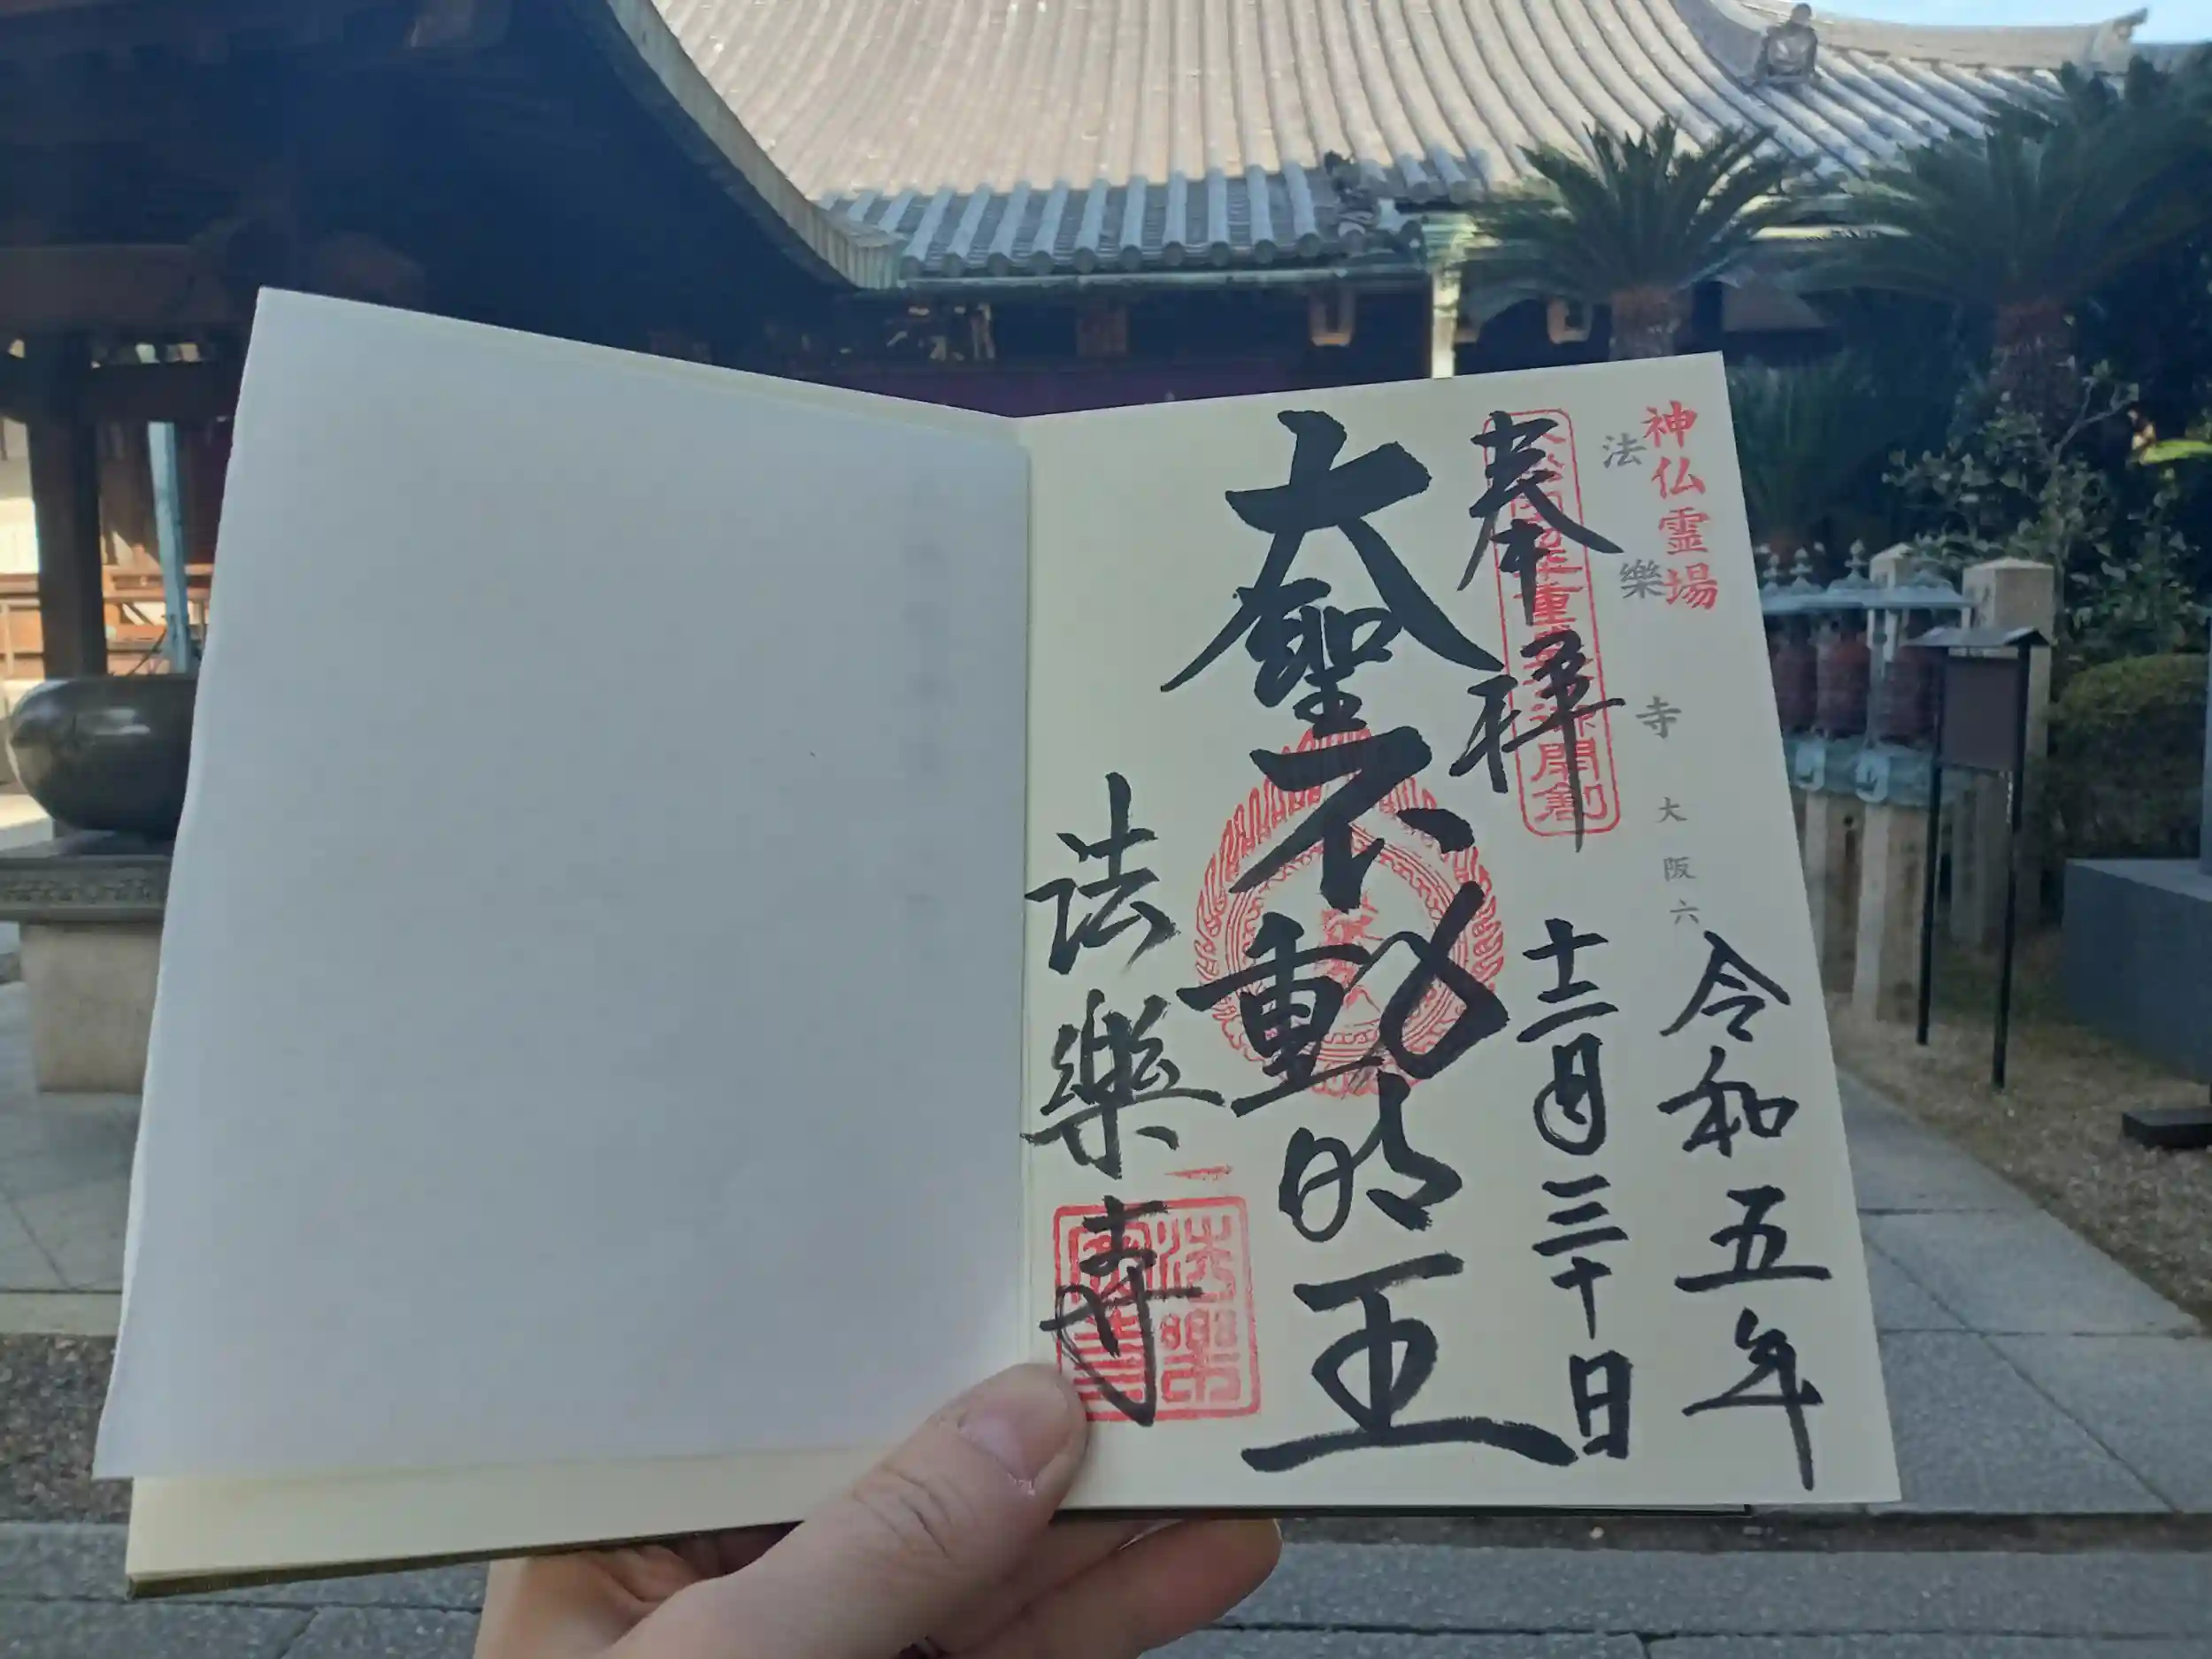 神仏霊場
法樂寺 大阪六
令和五年
奉拝
十二月三十日
大聖不動明王
法樂寺
法樂